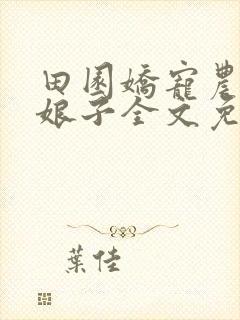 田園嬌寵農
娘子全文免
葉佳